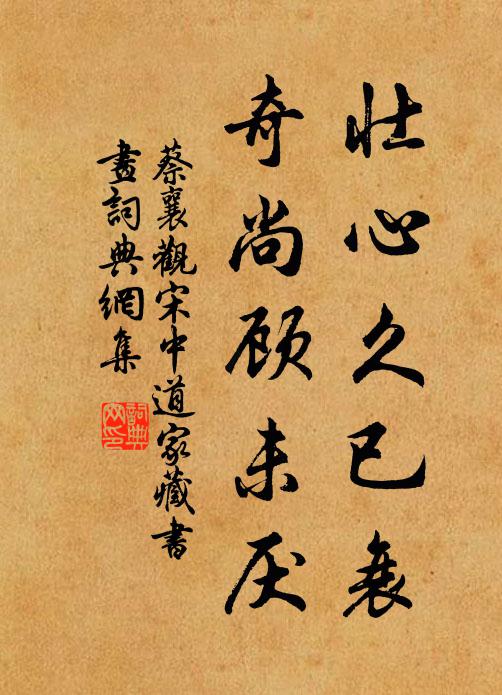 壮心久已衰
奇尚顾未厌
蔡襄觀宋中道家藏書
畫詞典網集
詞典网印